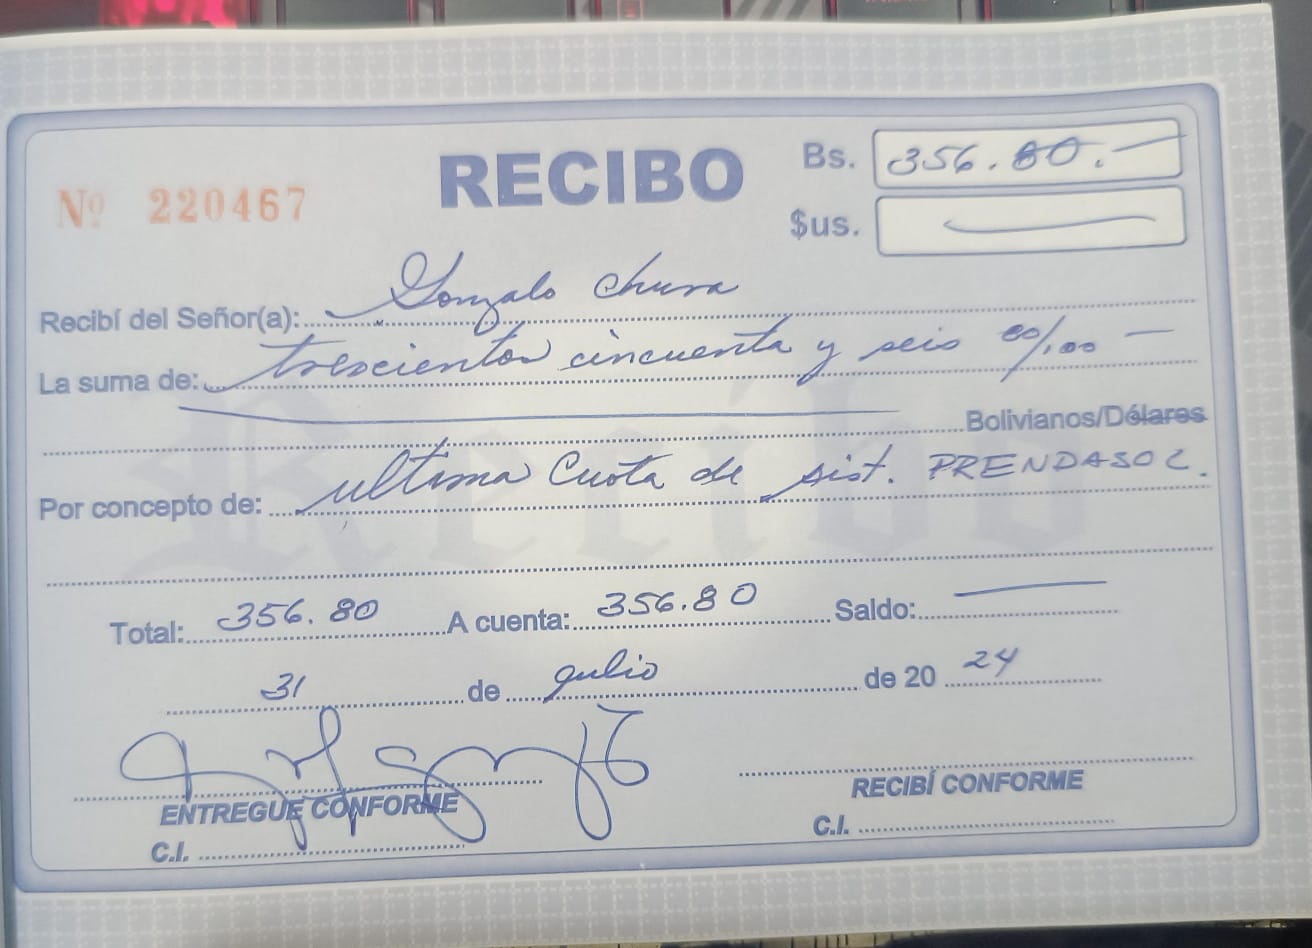 RECIBO
Nº 220467
Bs. 356.80.-
$us. —
Recibí del Señor(a): Gonzalo Chura
La suma de: trescientos cincuenta y seis 80/.00 —
Bolivianos/Dólares
Por concepto de: ultima Cuota de sist. PRENDASOL.
Total: 356.80 A cuenta: 356.80 Saldo: —
31 de julio de 2024
ENTREGUE CONFORME
RECIBÍ CONFORME
C.I.
C.I.
Recibo